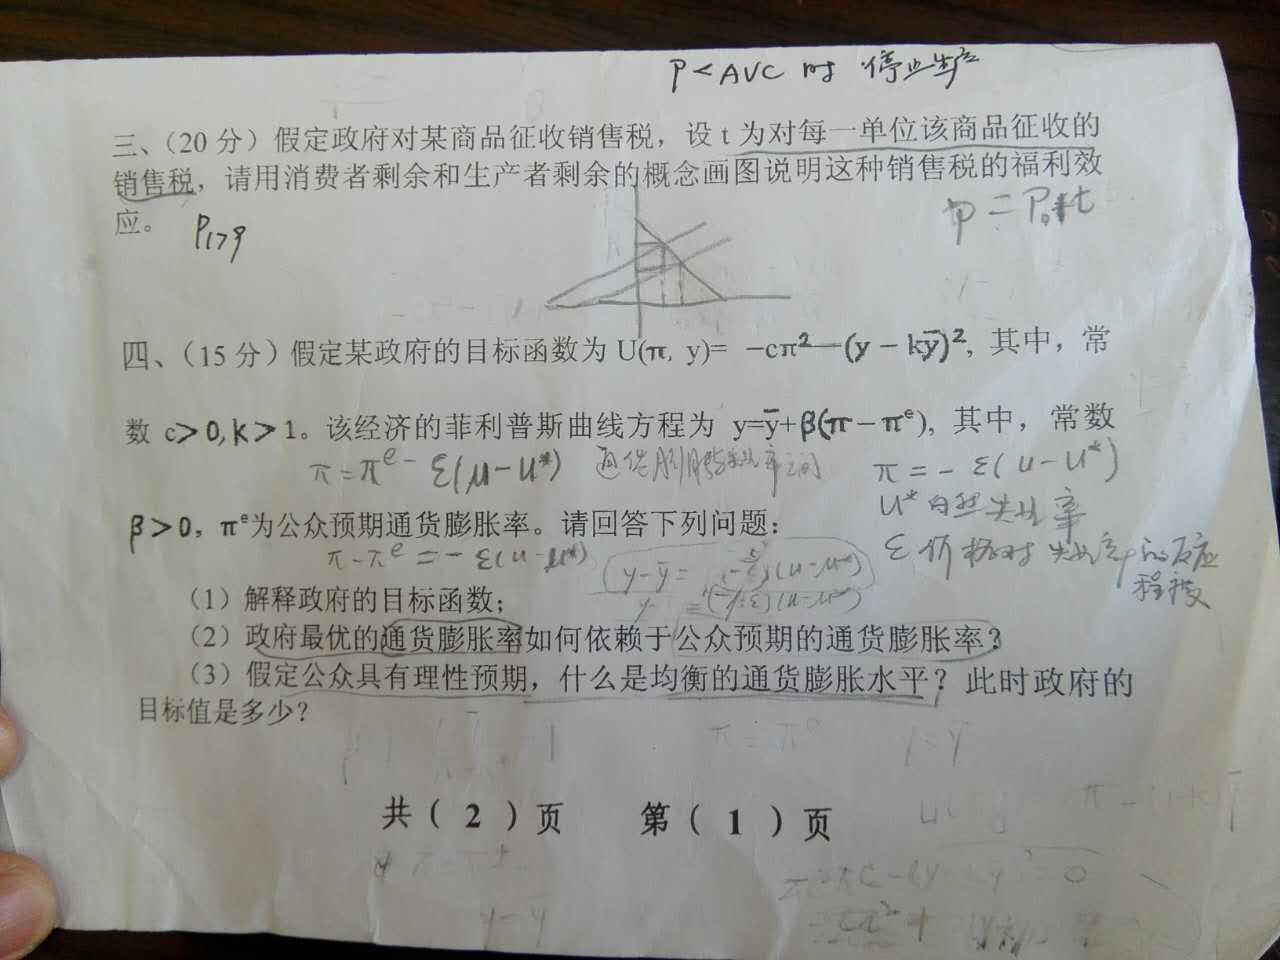 P<AVC 时 停止生产
三、（20 分）假定政府对某商品征收销售税，设 t 为对每一单位该商品征收的
销售税，请用消费者剩余和生产者剩余的概念画图说明这种销售税的福利效
应。 P179 P=P₀+t
四、（15 分）假定某政府的目标函数为 U(π, y)= −cπ²—(y − kȳ)², 其中，常
数 c>0,k>1。该经济的菲利普斯曲线方程为 y=ȳ+β(π−πᵉ), 其中，常数
π=πᵉ− ε(u−u*) π=−ε(u−u*)
u*自然失业率
β>0，πᵉ为公众预期通货膨胀率。请回答下列问题：
π−πᵉ=−ε(u−u*) ε价格对失业率的反应
程度
（1）解释政府的目标函数；
（2）政府最优的通货膨胀率如何依赖于公众预期的通货膨胀率？
（3）假定公众具有理性预期，什么是均衡的通货膨胀水平？此时政府的
目标值是多少？
π=πᵉ y=ȳ
共（ 2 ）页 第（ 1 ）页